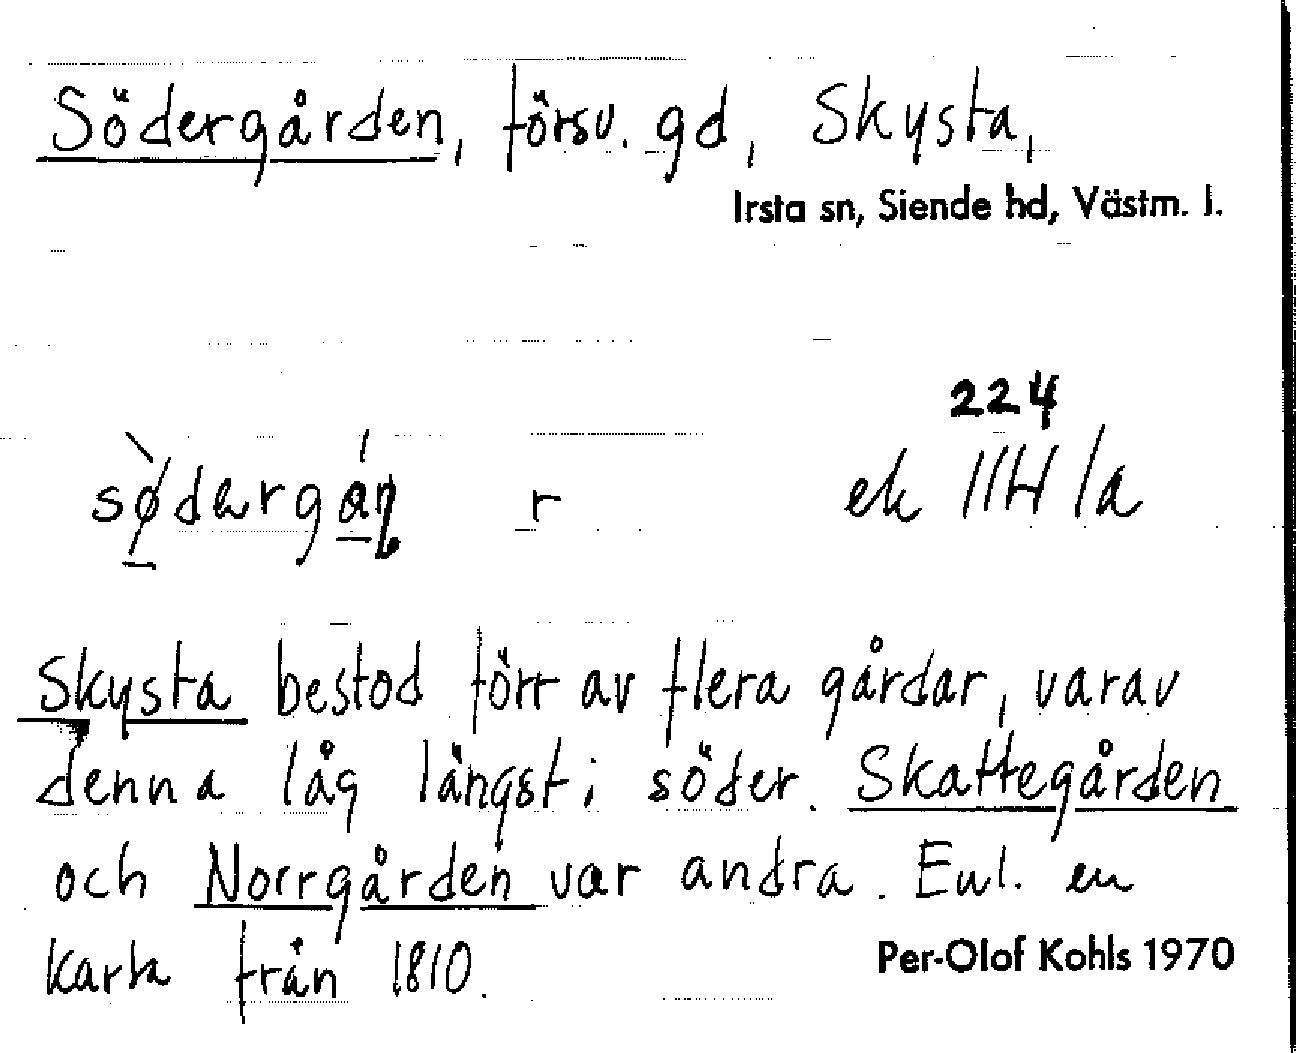 Södergården, försv. gd, Skysta,
Irsta sn, Siende hd, Västm. l.
224
r ek 11H /a
Skysta bestod förr av flera gårdar, varav
denna låg längst i söder. Skattegården
och Norrgården var andra. Enl. en
karta från 1810.
Per-Olof Kohls 1970